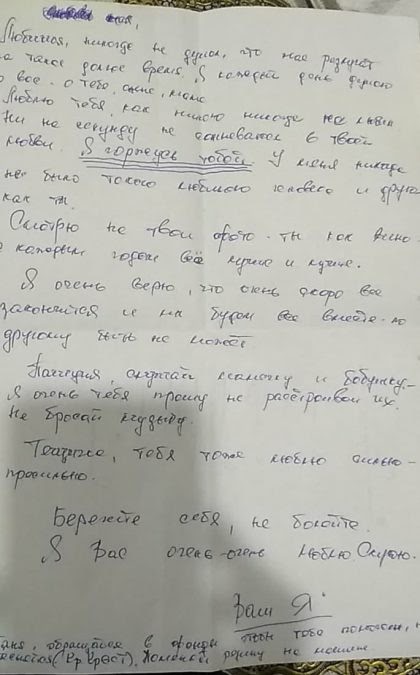 Любимая, никогда не думал, что нас разлучат
на такое долгое время. Я каждый день думаю
о все- о тебе, маме
Люблю тебя, как никого никогда не любил
Ни на секунду не сомневался в твоей
любви. Я горжусь тобой. У меня никогда
не было такого любимого человека и друга
как ты.
Смотрю на твои фото- ты как вино-
с каждым годом всё лучше и лучше.
Я очень верю, что очень скоро все
закончится и мы будем все вместе- по
другому быть не может
слушай мамочку и бабушку-
Я очень тебя прошу не расстраивай их.
Не бросай музыку.
тебя тоже люблю сильно-
пресильно.
Берегите себя, не бойтесь.
Я Вас очень-очень люблю. Скучаю.
Ваш Я
Таня, обращайся в фонды
(Кр Крест),